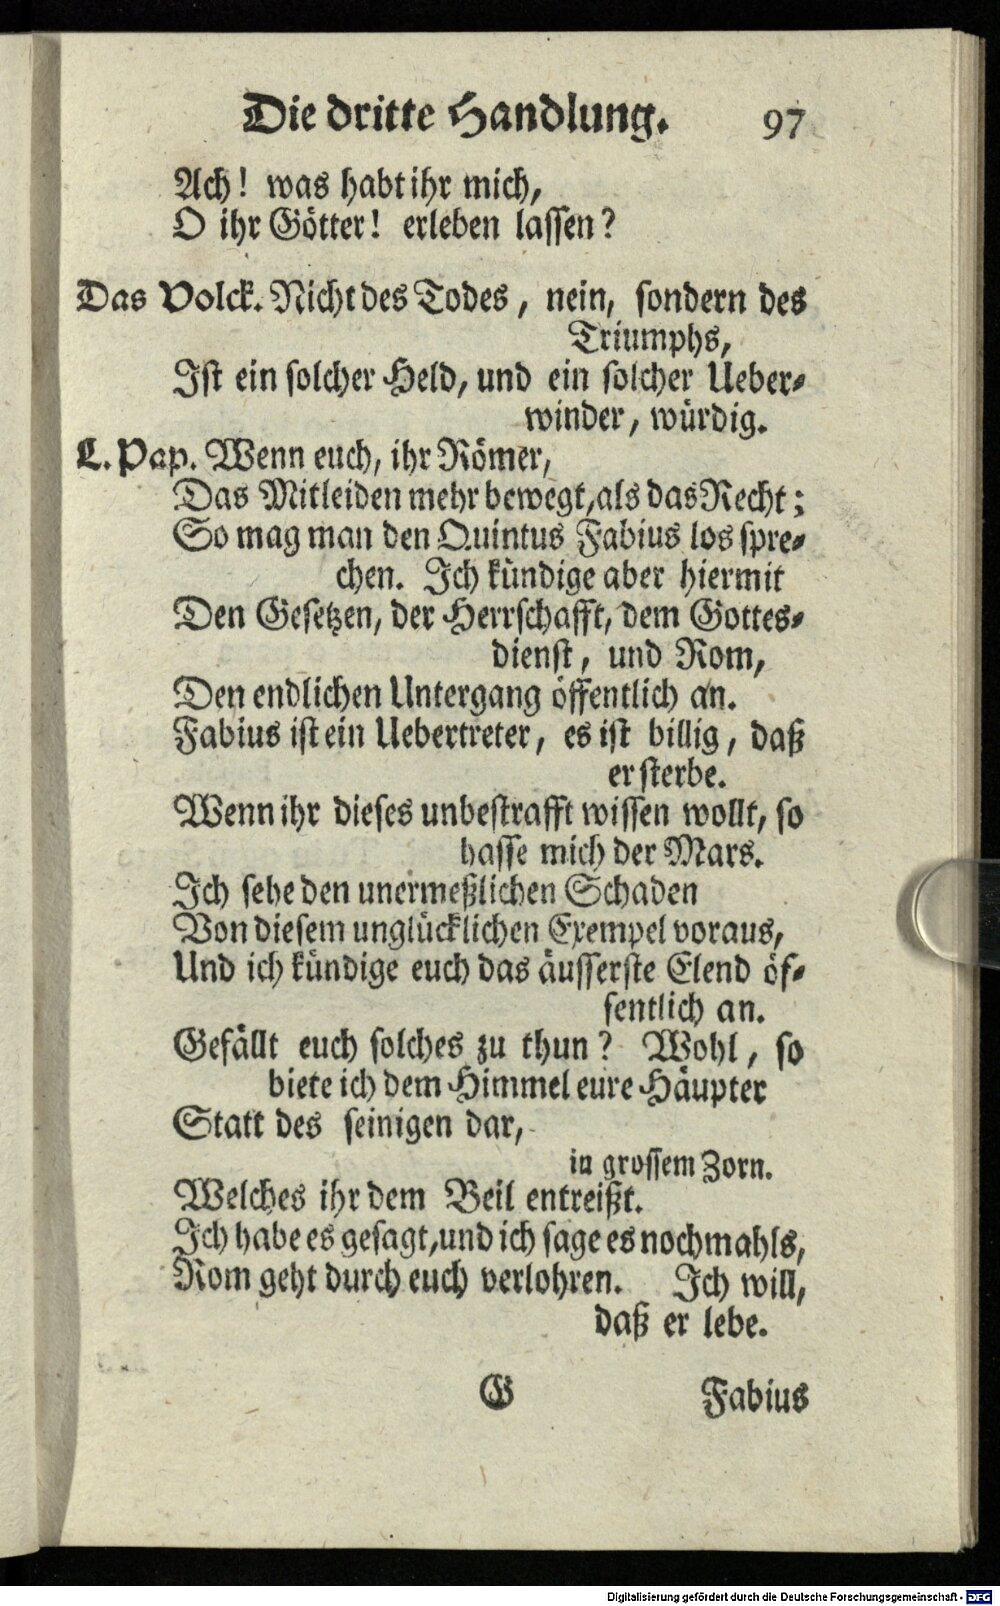 Die dritte Handlung. 97
Ach! was habt ihr mich,
O ihr Götter! erleben lassen?
Das Volck. Nicht des Todes, nein, sondern des
Triumphs,
Ist ein solcher Held, und ein solcher Ueber-
winder, würdig.
L. Pap. Wenn euch, ihr Römer,
Das Mitleiden mehr bewegt, als das Recht;
So mag man den Quintus Fabius los spre-
chen. Ich kündige aber hiermit
Den Gesetzen, der Herrschafft, dem Gottes-
dienst, und Rom,
Den endlichen Untergang öffentlich an.
Fabius ist ein Uebertreter, es ist billig, daß
er sterbe.
Wenn ihr dieses unbestrafft wissen wollt, so
hasse mich der Mars.
Ich sehe den unermeßlichen Schaden
Von diesem unglücklichen Exempel voraus,
Und ich kündige euch das äusserste Elend öf-
fentlich an.
Gefällt euch solches zu thun? Wohl, so
biete ich dem Himmel eure Häupter
Statt des seinigen dar,
in grossem Zorn.
Welches ihr dem Beil entreißt.
Ich habe es gesagt, und ich sage es nochmahls,
Rom geht durch euch verlohren. Ich will,
daß er lebe.
G Fabius
Digitalisierung gefördert durch die Deutsche Forschungsgemeinschaft - DFG